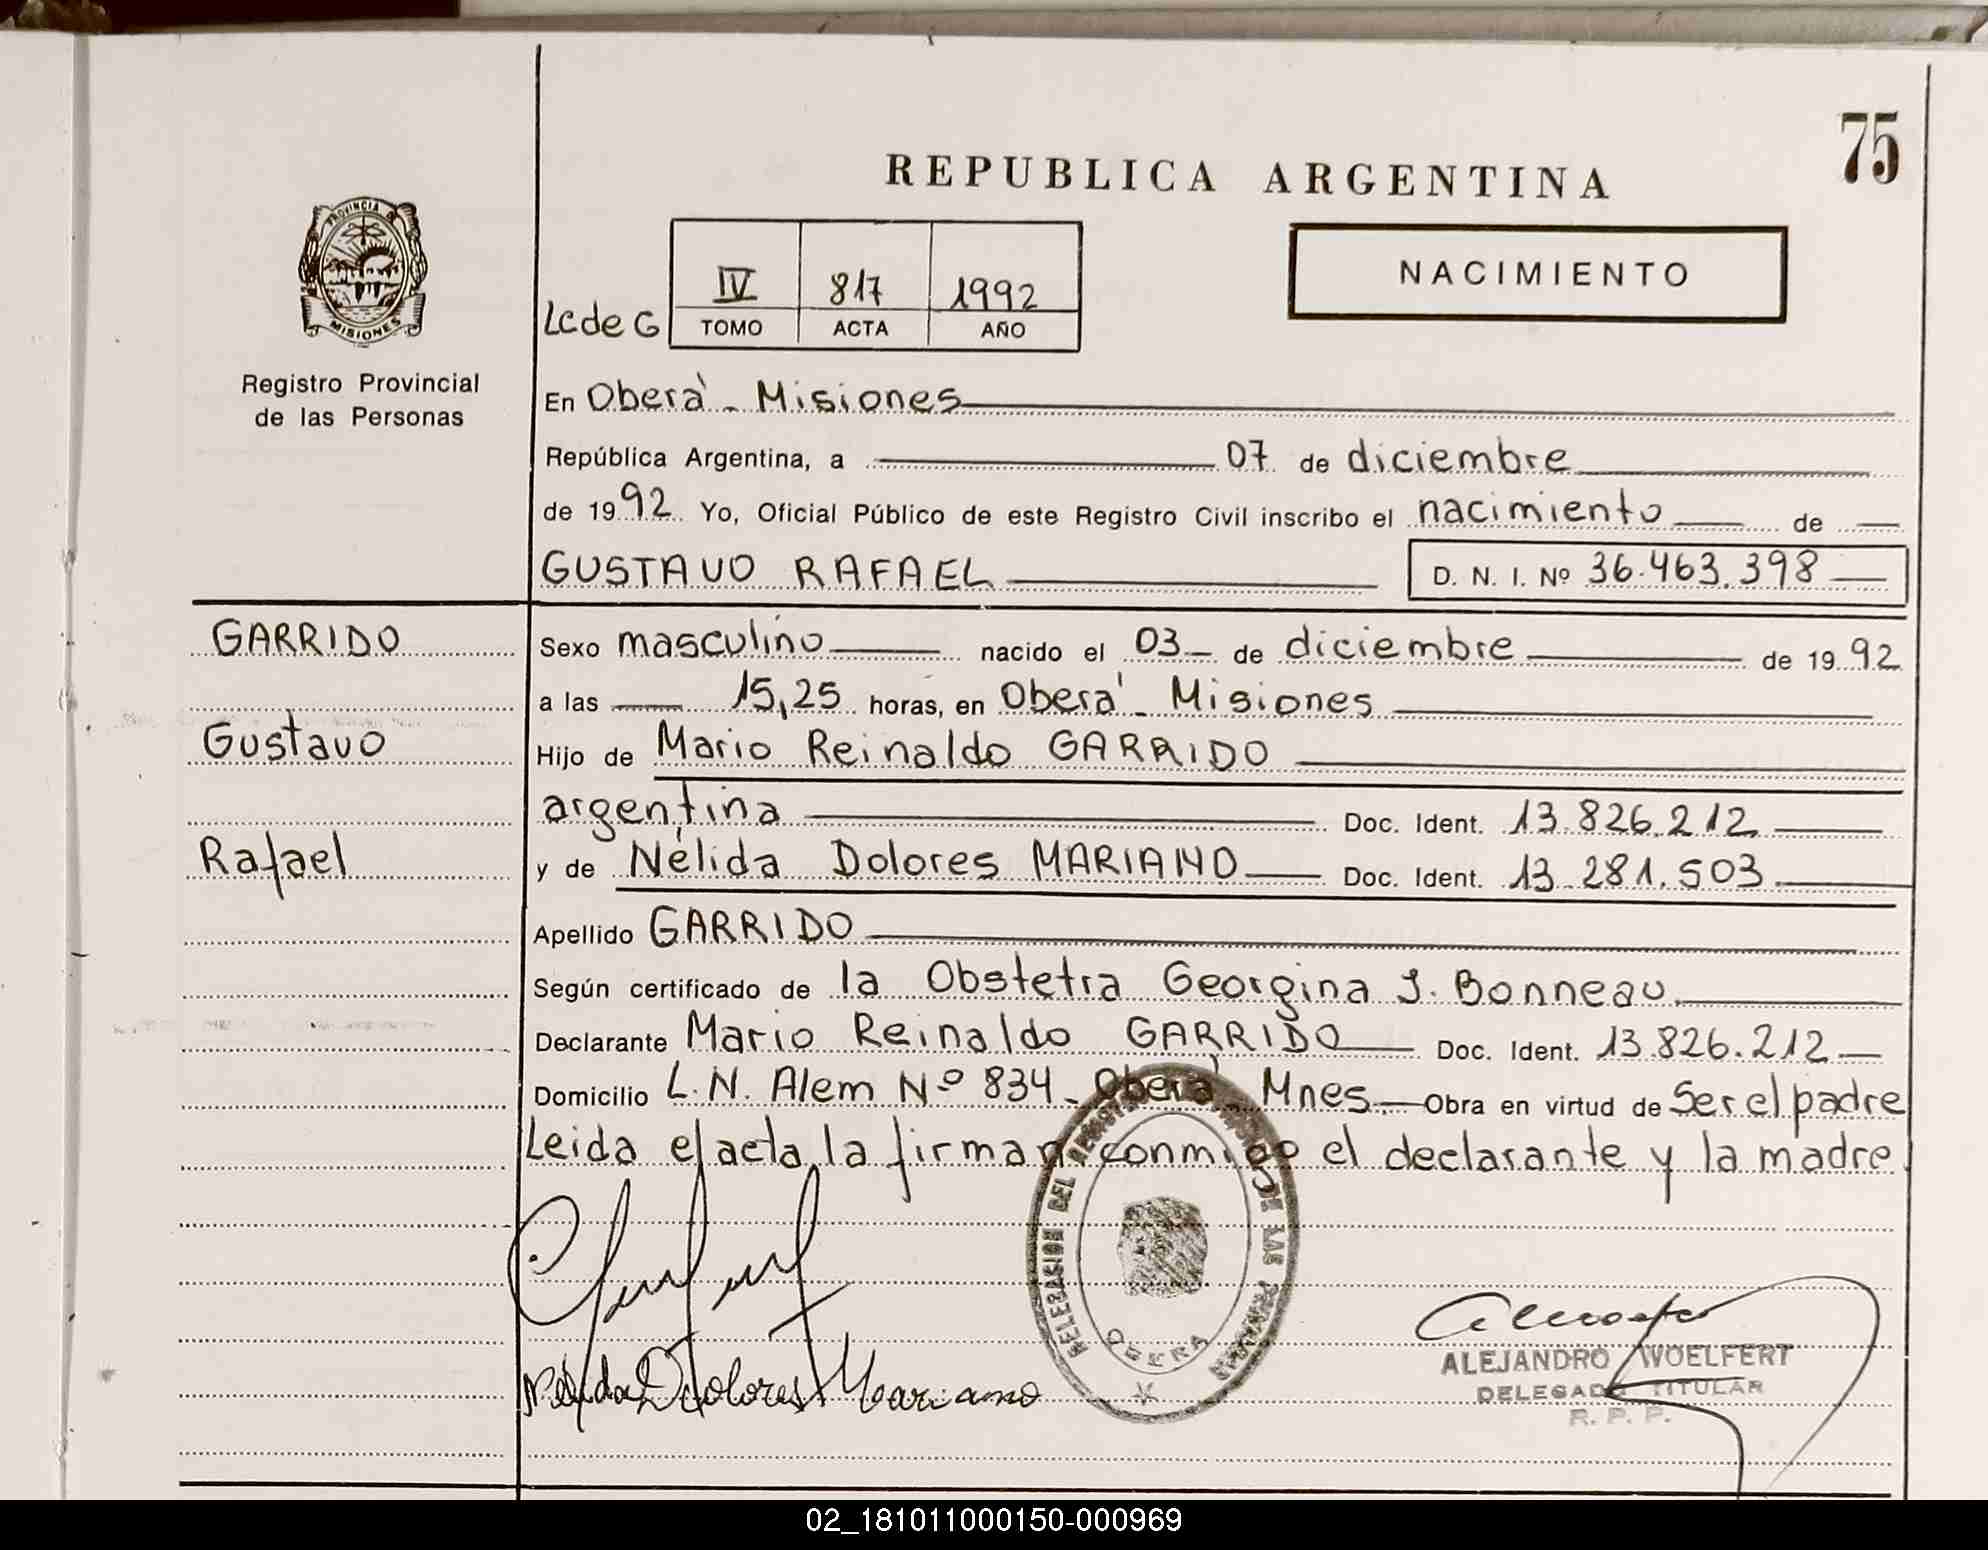 75
REPUBLICA ARGENTINA
PROVINCIA DE
MISIONES
Registro Provincial
de las Personas
NACIMIENTO
IV 817 1992
Lc de G TOMO ACTA AÑO
En Oberá - Misiones
República Argentina, a 07 de diciembre
de 1992 Yo, Oficial Público de este Registro Civil inscribo el nacimiento de
GUSTAVO RAFAEL D. N. I. Nº 36.463.398
GARRIDO
Gustavo
Rafael
Sexo masculino nacido el 03 de diciembre de 1992
a las 15,25 horas, en Oberá - Misiones
Hijo de Mario Reinaldo GARRIDO
argentina Doc. Ident. 13.826.212
y de Nélida Dolores MARIANO Doc. Ident. 13.281.503
Apellido GARRIDO
Según certificado de la Obstetra Georgina J. Bonneau
Declarante Mario Reinaldo GARRIDO Doc. Ident. 13.826.212
Domicilio L.N. Alem Nº 834 - Oberá - Mnes. Obra en virtud de Ser el padre
Leida el acta, la firman conmigo el declarante y la madre.
DELEGACION DEL REGISTRO PROVINCIAL DE LAS PERSONAS
OBERA
Nélida Dolores Mariano
ALEJANDRO WOELFERT
DELEGADO TITULAR
R. P. P.
02_181011000150-000969